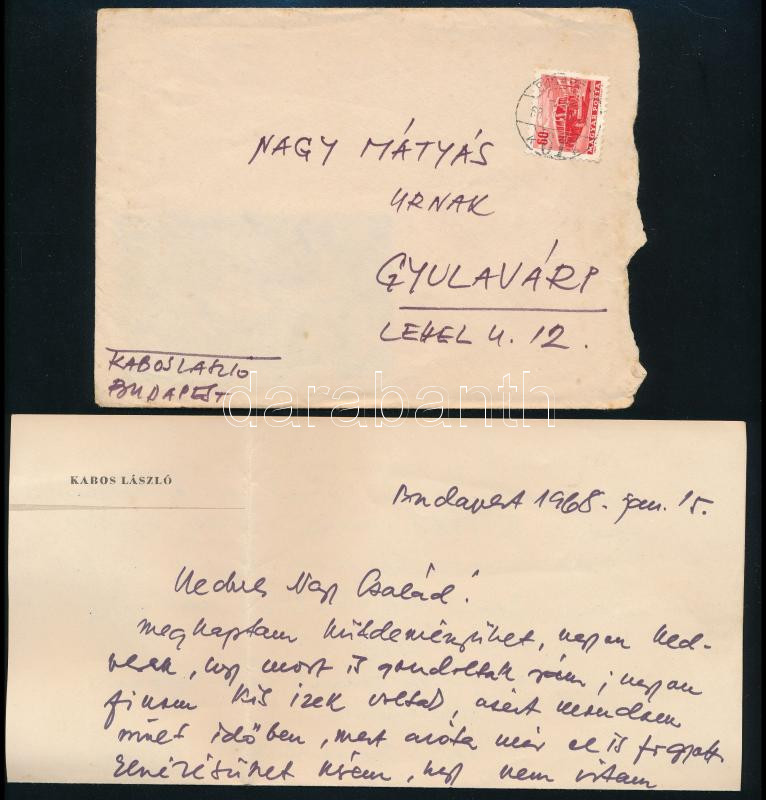 NAGY MÁTYÁS
URNAK
GYULAVÁRI
LEHEL U. 12.
KABOS LASZLO
BUDAPEST
60
MAGYAR POSTA
darabanth
KABOS LÁSZLÓ
Budapest 1968. jan. 15.
Kedves Nagy Család!
Megkaptam küldeményüket, nagyon ked-
vesek, hogy most is gondoltak rám; nagyon
finom kis izek voltak, azért mondom
mult időben, mert azóta már el is fogyott.
Elnézésüket kérem, hogy nem irtam